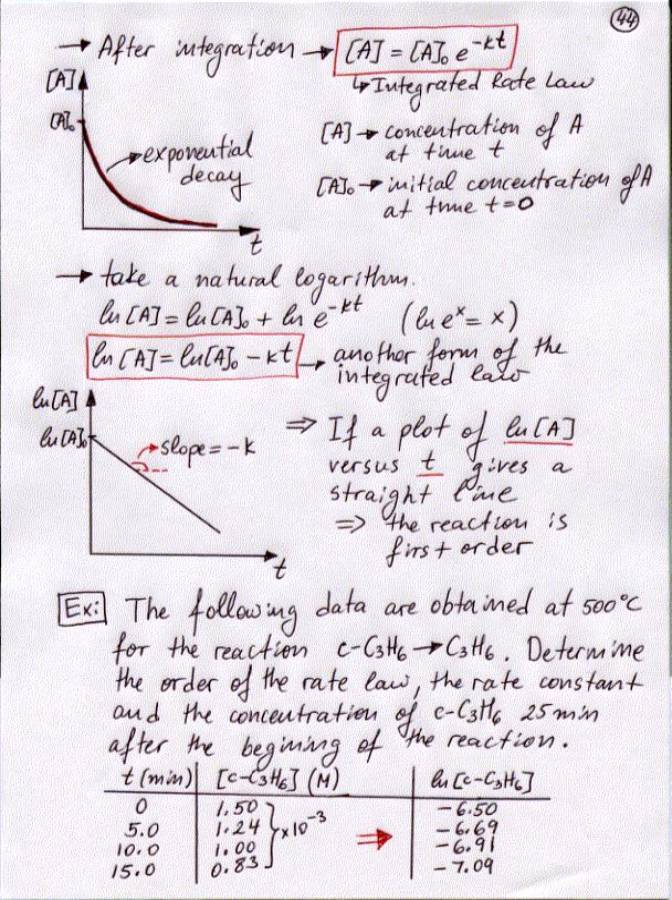 44
→ After integration → [A] = [A]₀ e^-kt
↳ Integrated Rate Law
[A]
[A]₀
→ exponential
decay
t
[A] → concentration of A
at time t
[A]₀ → initial concentration of A
at time t=0
→ take a natural logarithm.
ln [A] = ln [A]₀ + ln e^-kt (ln e^x = x)
ln [A] = ln[A]₀ - kt → another form of the
integrated law
ln [A]
ln [A]₀
→ slope = -k
t
⇒ If a plot of ln [A]
versus t gives a
straight line
⇒ the reaction is
first order
Ex: The following data are obtained at 500°C
for the reaction c-C₃H₆ → C₃H₆. Determine
the order of the rate law, the rate constant
and the concentration of c-C₃H₆ 25 min
after the begining of the reaction.
t (min) [c-C₃H₆] (M) ln [c-C₃H₆]
0 1.50 -6.50
5.0 1.24 } x10^-3 ⇒ -6.69
10.0 1.00 -6.91
15.0 0.83 -7.09